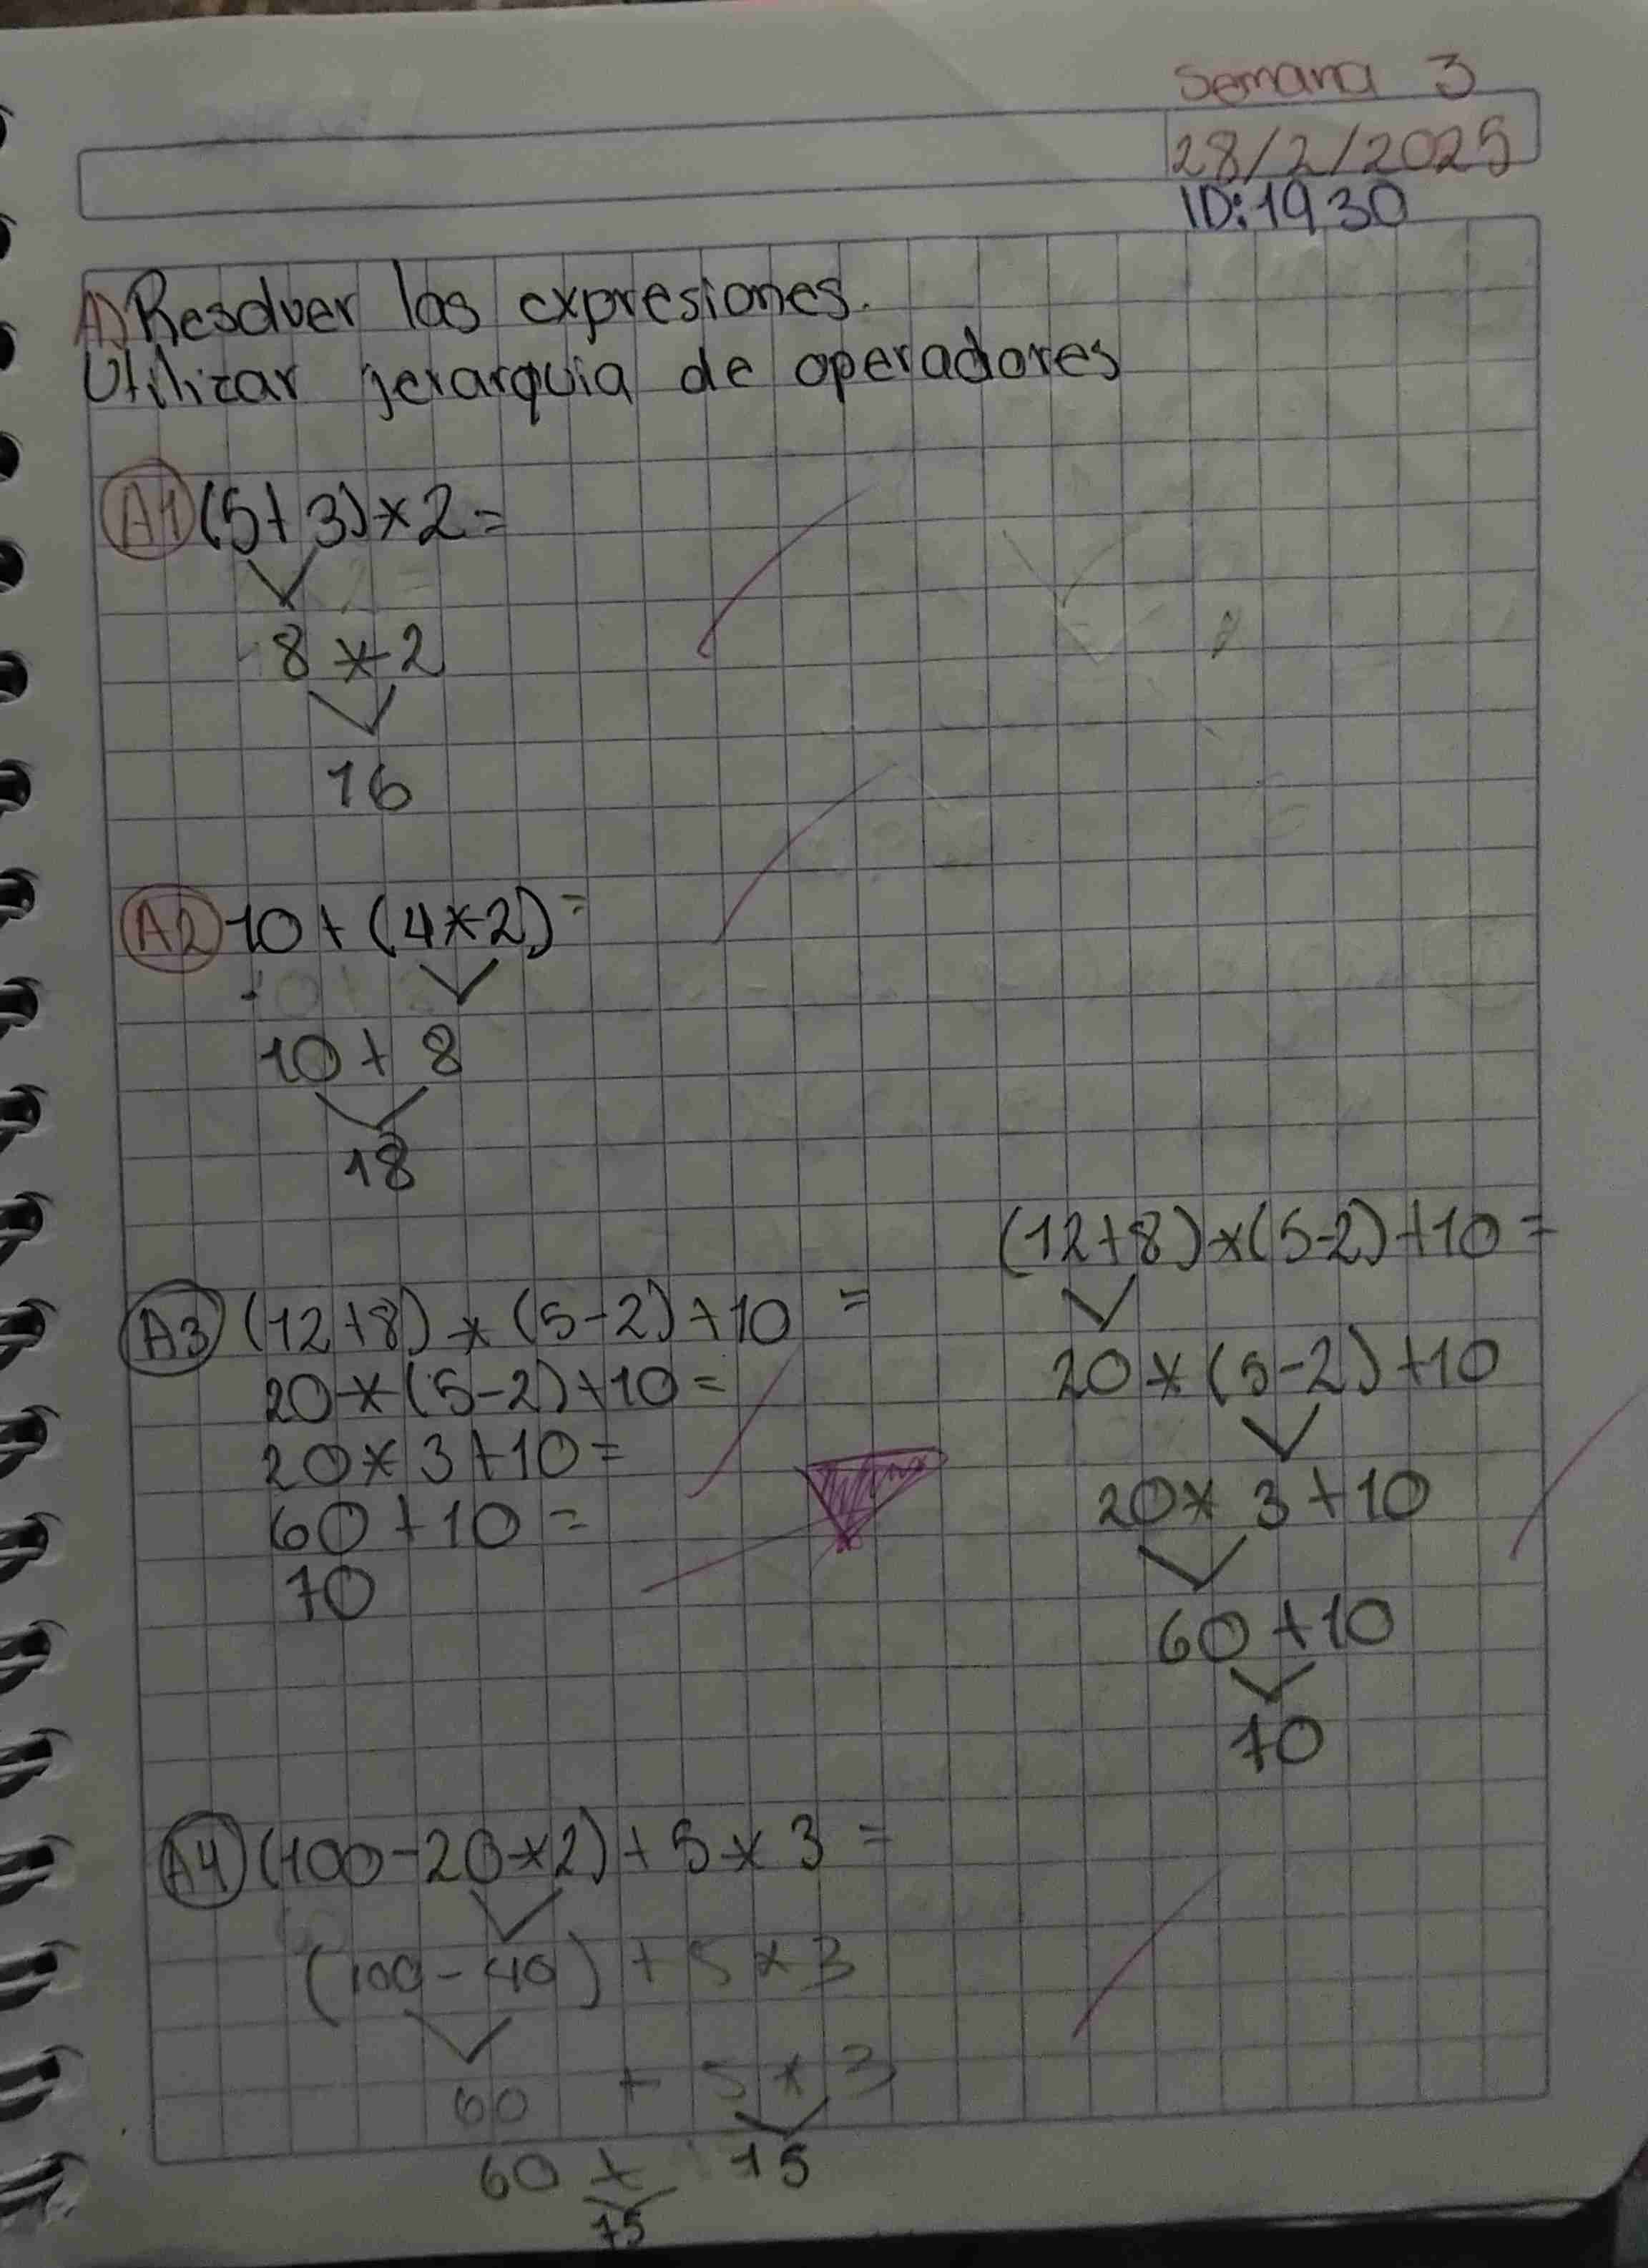 Semana 3
28/2/2025
ID:1930
A) Resolver las expresiones.
Utilizar jerarquia de operadores
A1 (5+3)*2=
8*2
16
A2 10+(4*2)=
10+8
18
A3 (12+8)*(5-2)+10=
20*(5-2)+10=
20*3+10=
60+10=
70
(12+8)*(5-2)+10=
20*(5-2)+10
20*3+10
60+10
70
A4 (100-20*2)+5*3=
(100-40)+5*3
60 + 5*3
60 + 15
75